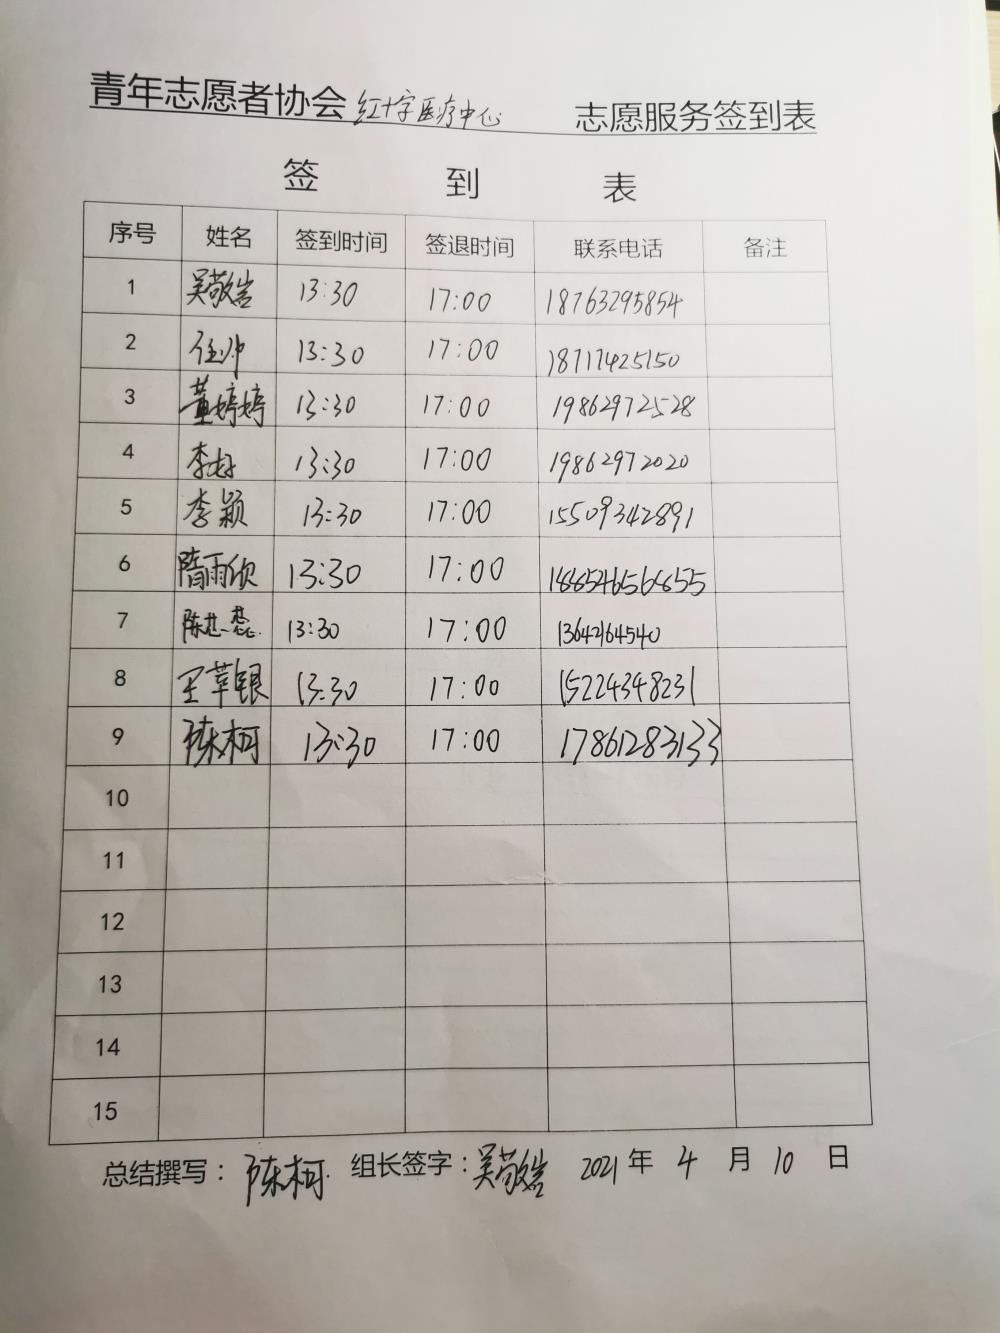 青年志愿者协会 红十字医疗中心 志愿服务签到表
签 到 表
序号 姓名 签到时间 签退时间 联系电话 备注
1 吴敬岩 13:30 17:00 18763295854
2 任帅 13:30 17:00 18717425150
3 董婷婷 13:30 17:00 19862972528
4 李好 13:30 17:00 19862972020
5 李颖 13:30 17:00 15509342891
6 隋雨欣 13:30 17:00
7 13:30 17:00 13642164540
8 王苹银 13:30 17:00 15224348231
9 陈柯 13:30 17:00 17861283133
10
11
12
13
14
15
总结撰写：陈柯 组长签字：吴敬岩 2021 年 4 月 10 日